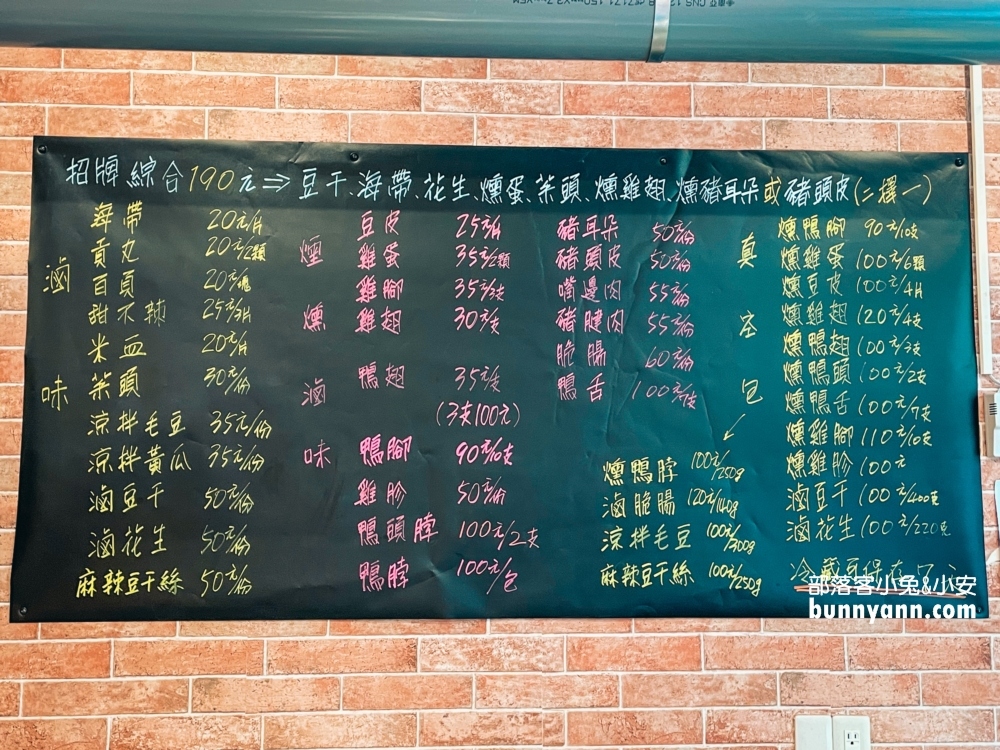 招牌綜合190元⇒豆干、海帶、花生、燻蛋、菜頭、燻雞翅、燻豬耳朵或豬頭皮(二擇一)
滷味
海帶 20元/片
貢丸 20元/2顆
百頁 20元/塊
甜不辣 25元/3片
米血 20元/片
菜頭 30元/份
涼拌毛豆 35元/份
涼拌黃瓜 35元/份
滷豆干 50元/份
滷花生 50元/份
麻辣豆干絲 50元/份
煙燻滷味
豆皮 25元/片
雞蛋 35元/2顆
雞腳 35元/3支
雞翅 30元/支
鴨翅 35元/支
(3支100元)
鴨腳 90元/10支
雞胗 50元/份
鴨頭脖 100元/2支
鴨脖 100元/包
豬耳朵 50元/份
豬頭皮 50元/份
嘴邊肉 55元/份
豬腱肉 55元/份
脆腸 60元/份
鴨舌 100元/7支
真空包
燻鴨腳 90元/10支
燻雞蛋 100元/6顆
燻豆皮 100元/4片
燻雞翅 120元/4支
燻鴨翅 100元/3支
燻鴨頭 100元/2支
燻鴨舌 100元/7支
燻雞腳 110元/10支
燻雞胗 100元
滷豆干 100元/400克
滷花生 100元/220克
燻鴨脖 100元/250g
滷脆腸 120元/140g
涼拌毛豆 100元/300g
麻辣豆干絲 100元/250g
冷藏可保存7天
部落客小兔&小安
bunnyann.com